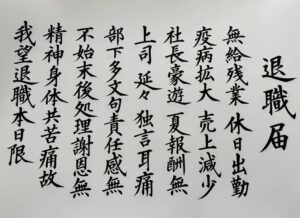 退職届
無給残業 休日出勤
疫病拡大 売上減少
社長豪遊 夏報酬無
上司延々 独言耳痛
部下多文句責任感無
不始末後処理謝恩無
精神身体共苦痛故
我望退職本日限